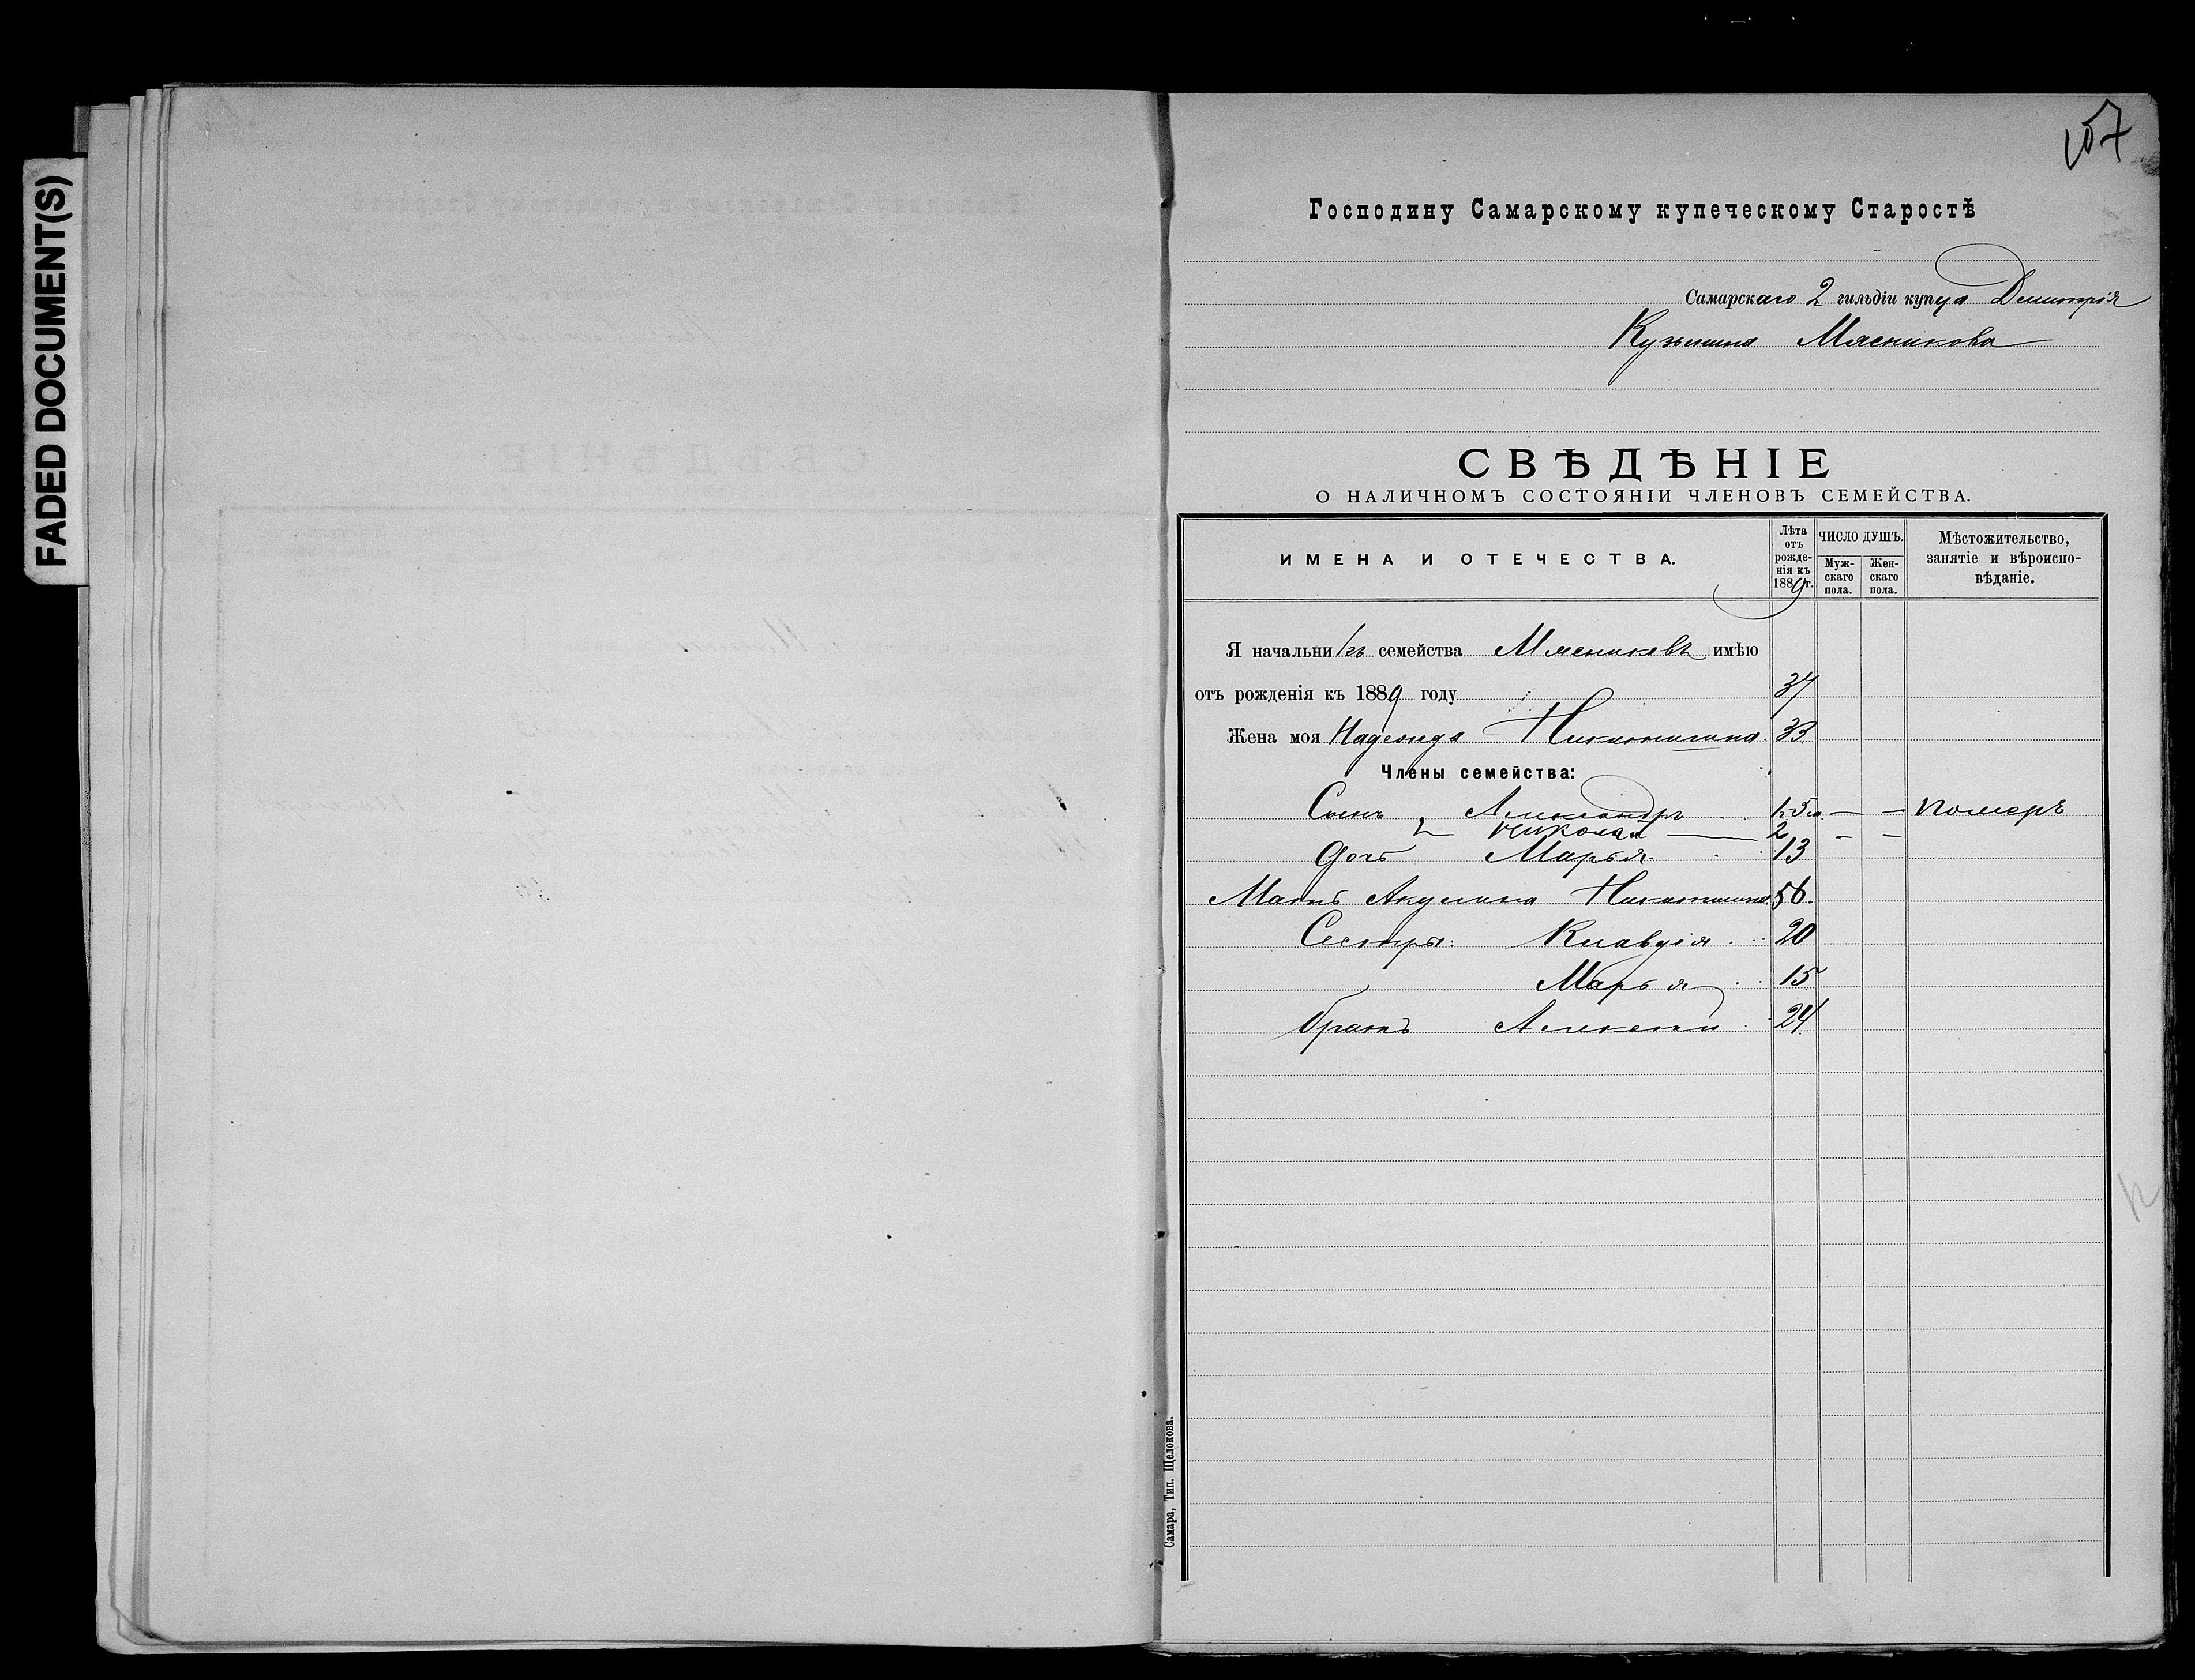 FADED DOCUMENT(S)
157
Господину Самарскому купеческому Старостѣ
Самарскаго 2 гильдіи купца Димитрія
Кузьмина Мясникова
СВѢДѢНІЕ
О НАЛИЧНОМЪ СОСТОЯНІИ ЧЛЕНОВЪ СЕМЕЙСТВА.
ИМЕНА И ОТЕЧЕСТВА.
Лѣта отъ рожде-нія къ 1889 г.
ЧИСЛО ДУШЪ.
Муж-скаго пола.
Жен-скаго пола.
Мѣстожительство, занятіе и вѣроиспо-вѣданіе.
Я начальникъ семейства Мясниковъ имѣю
отъ рожденія къ 1889 году 37
Жена моя Надежда Никитична 33
Члены семейства:
Сынъ Александръ 1,5 м — — померъ
2 Николай — 2 — —
Дочь Марья 13
Мать Акулина Никитишна 56.
Сестры: Клавдія 20
Марья 15
братъ Алексей 24
Самара, Тип. Щелокова.